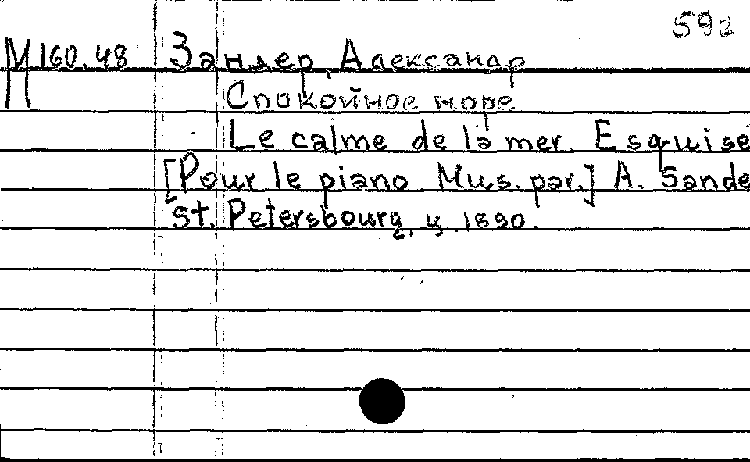 592
М160.48 Зандер, Александр
Спокойное море
Le calme de la mer. Esquise
[Pour le piano Mus. par.] A. Sande
St. Petersbourg, ц. 1890.